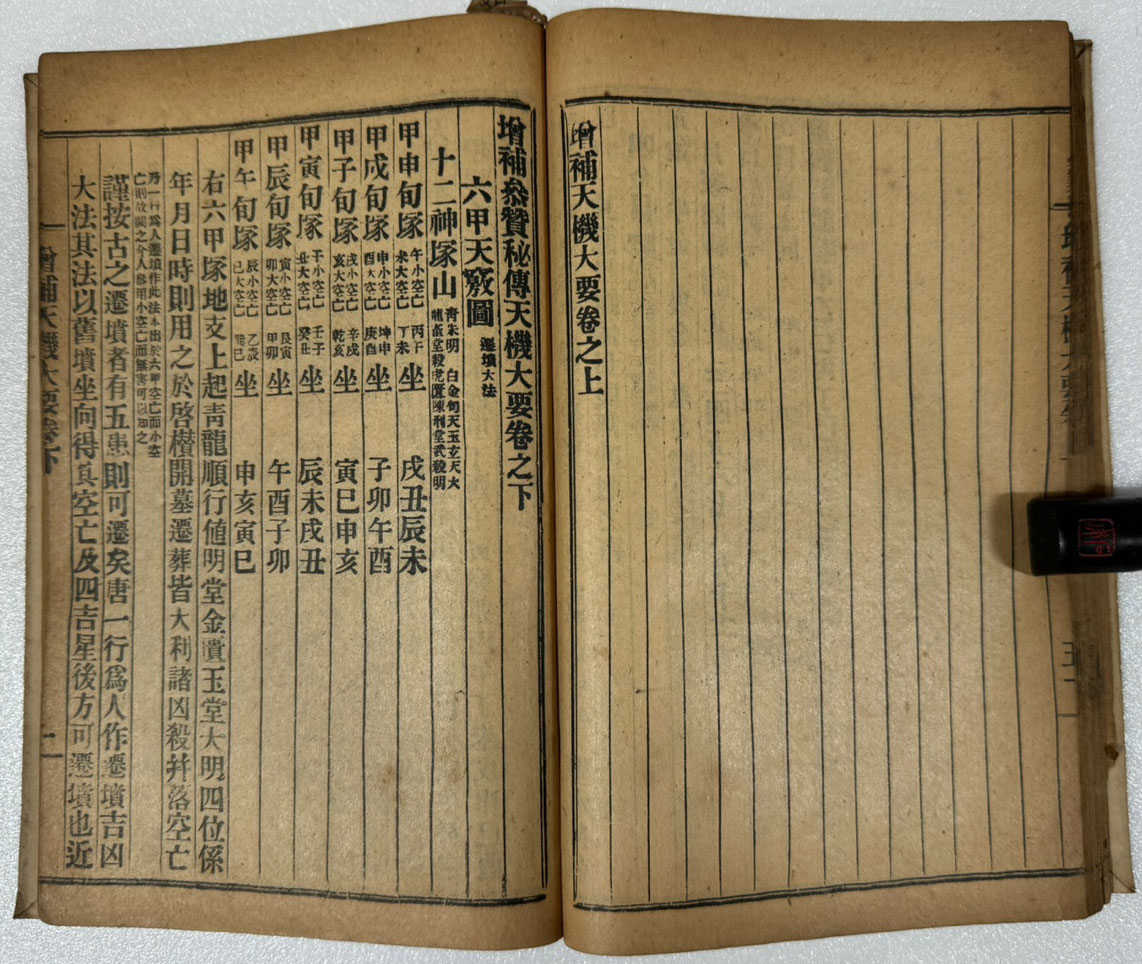 增補天機大要卷之上
增補叅贊秘傳天機大要卷之下
六甲天竅圖 遷墳大法
十二神塚山 靑朱明 白金句天玉玄天火
甲申旬塚 午小空亡 未大空亡 丙午 丁未 坐 戌丑辰未
甲戌旬塚 申小空亡 酉大空亡 坤申 庚酉 坐 子卯午酉
甲子旬塚 戌小空亡 亥大空亡 辛戌 乾亥 坐 寅巳申亥
甲寅旬塚 子小空亡 丑大空亡 壬子 癸丑 坐 辰未戌丑
甲辰旬塚 寅小空亡 卯大空亡 艮寅 甲卯 坐 午酉子卯
甲午旬塚 辰小空亡 巳大空亡 乙辰 巽巳 坐 申亥寅巳
右六甲塚地支上起靑龍順行値明堂金匱玉堂大明四位係
年月日時則用之於啓欑開墓遷葬皆大利諸凶殺幷落空亡
乃一行爲人遷墳作此法本出於六甲空亡而小空
亡則放闕之今人参用小空亡而無害可以知之
謹按古之遷墳者有五患則可遷矣唐一行爲人作遷墳吉凶
大法其法以舊墳坐向得眞空亡及四吉星後方可遷墳也近
增補天機大要卷下